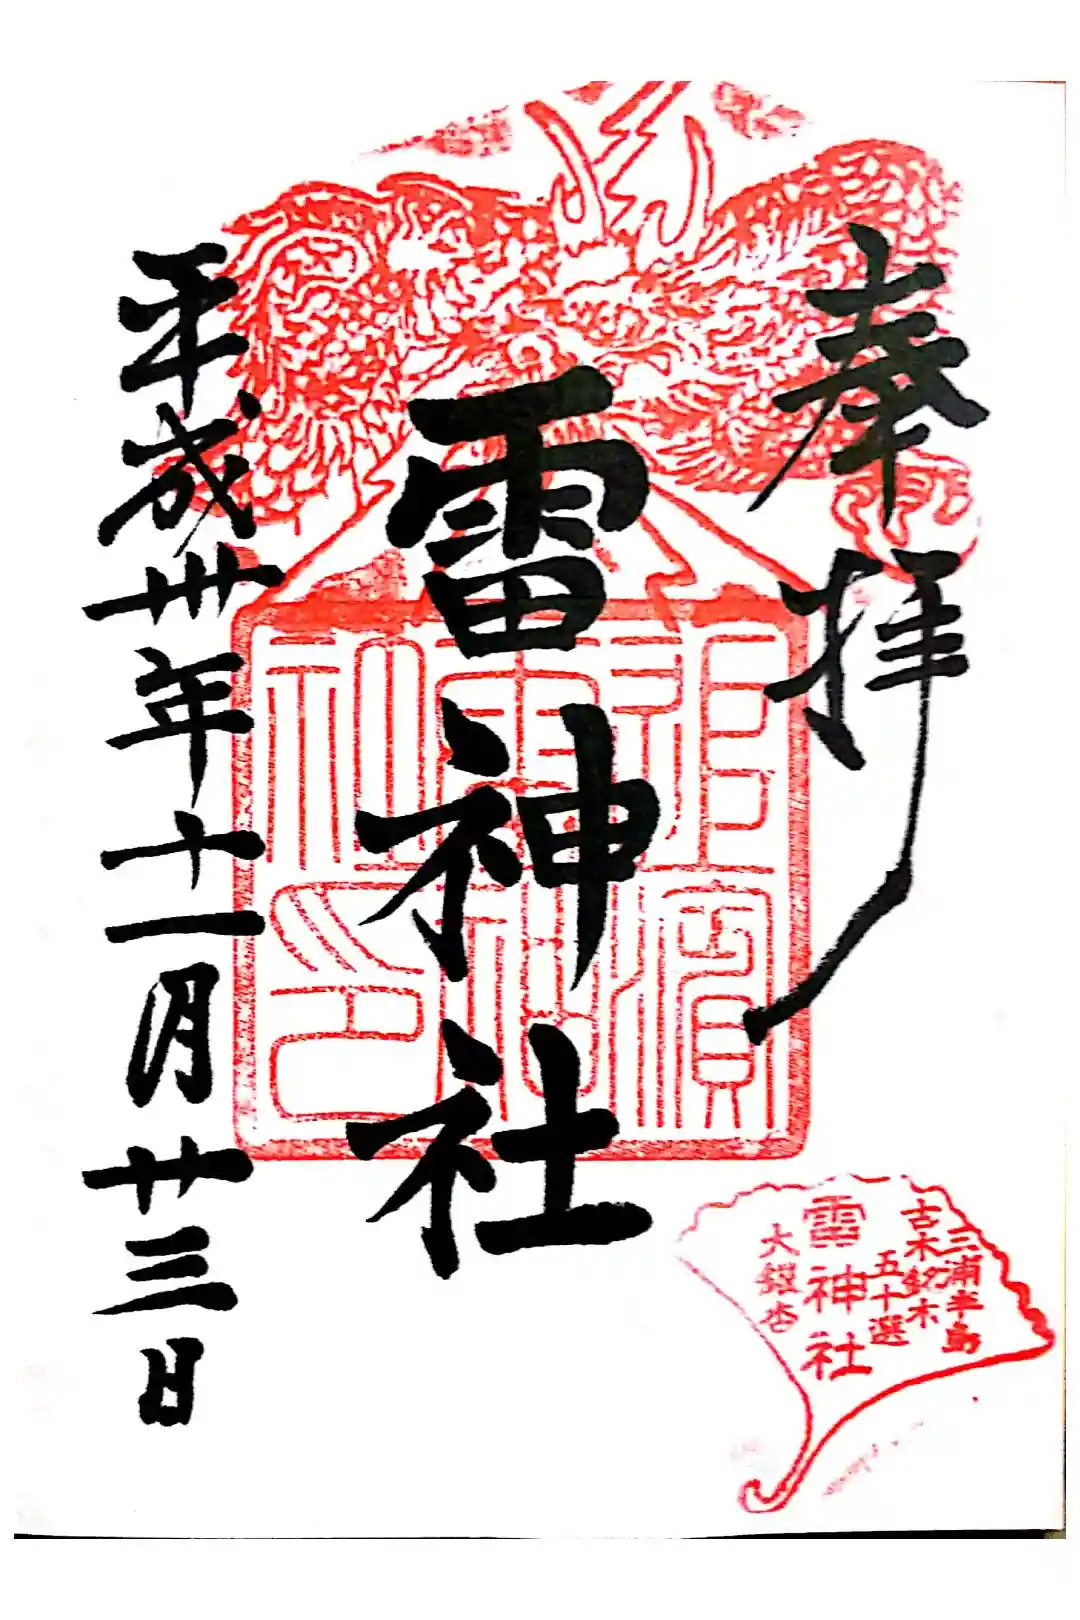 奉拝
雷神社
平成卅年十一月廿三日
追濱
雷神
社印
三浦半島
古木銘木
五十選
雷神社
大銀杏